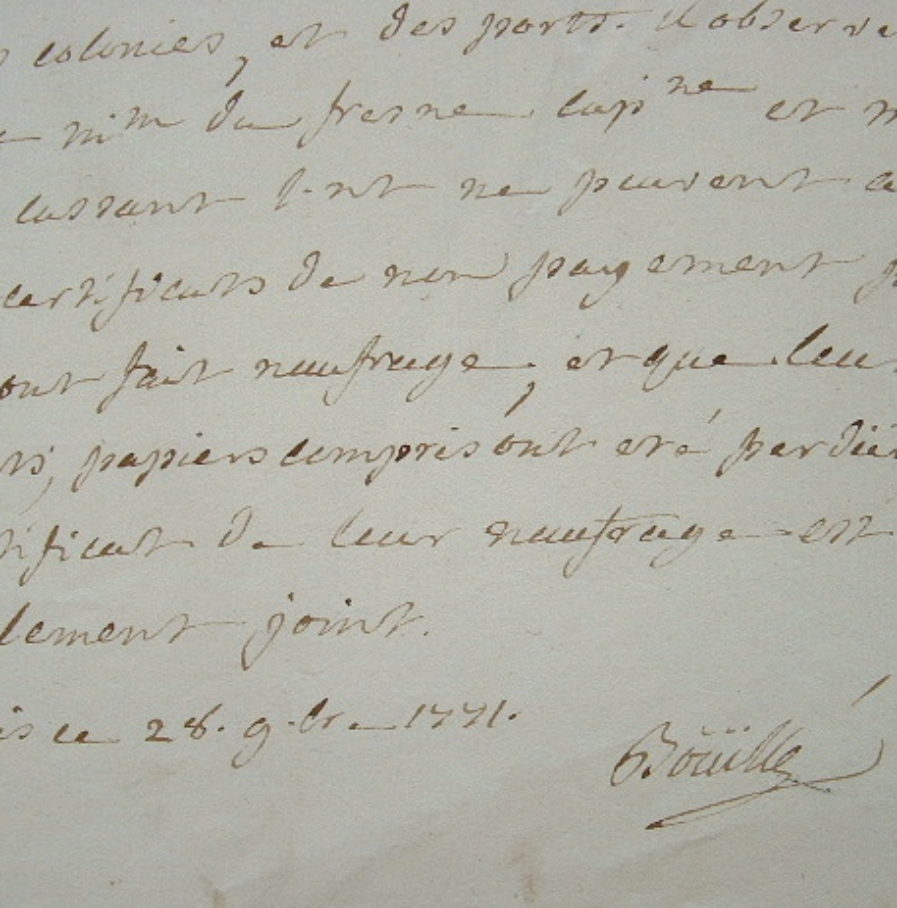 colonies, et des ports. il observe
du fresne cap ne et
cassant l-nt ne peuvent
certificats de non payement
ont fait naufrage, et que leu
papiers compris ont eté perdües
tificat de leur naufrage est
lement joint.
is ce 28. 9.bre 1771.
Boüillé